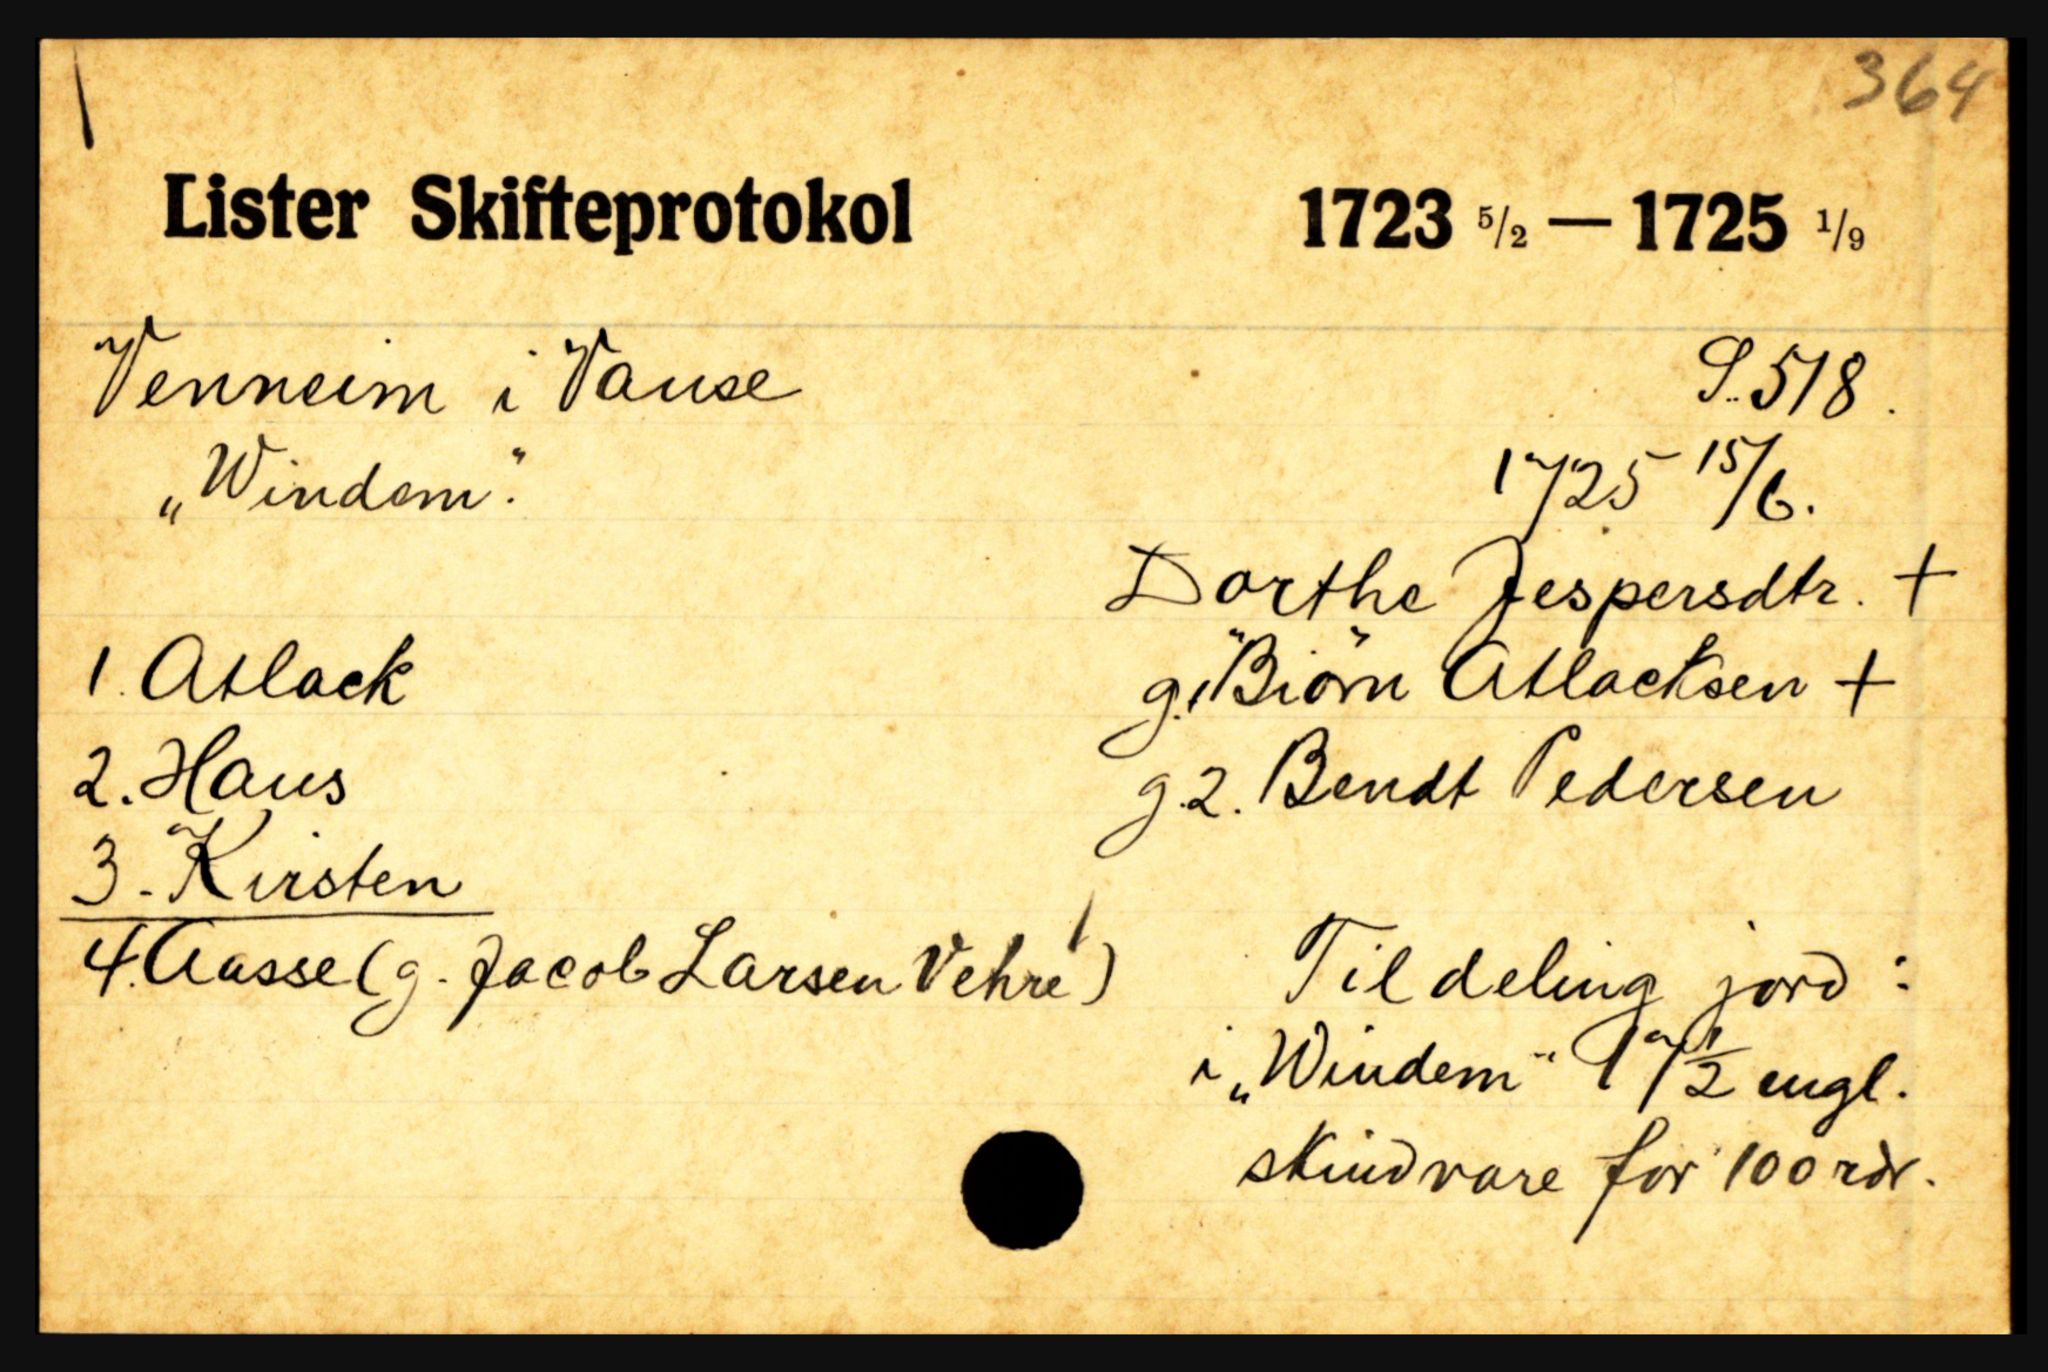 364
Lister Skifteprotokol 1723 5/2 — 1725 1/9
Venneim i Vanse S. 518.
„Windem“. 1725 15/6.
Dorthe Jespersdtr. +
1. Atlack g.1 "Biörn" Atlacksen +
2. Hans g.2. Bendt Pedersen
3. Kirsten
4. Aasse (g. Jacob Larsen Vehre)
Til deling jord:
i „Windem“ 1 1/2 engl.
skindvare for 100 rdr.